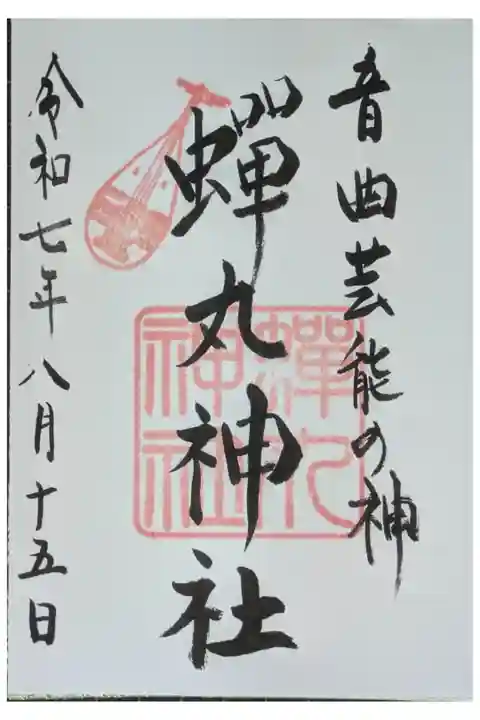 音曲芸能の神
蟬丸神社
蟬丸神社
令和七年八月十五日